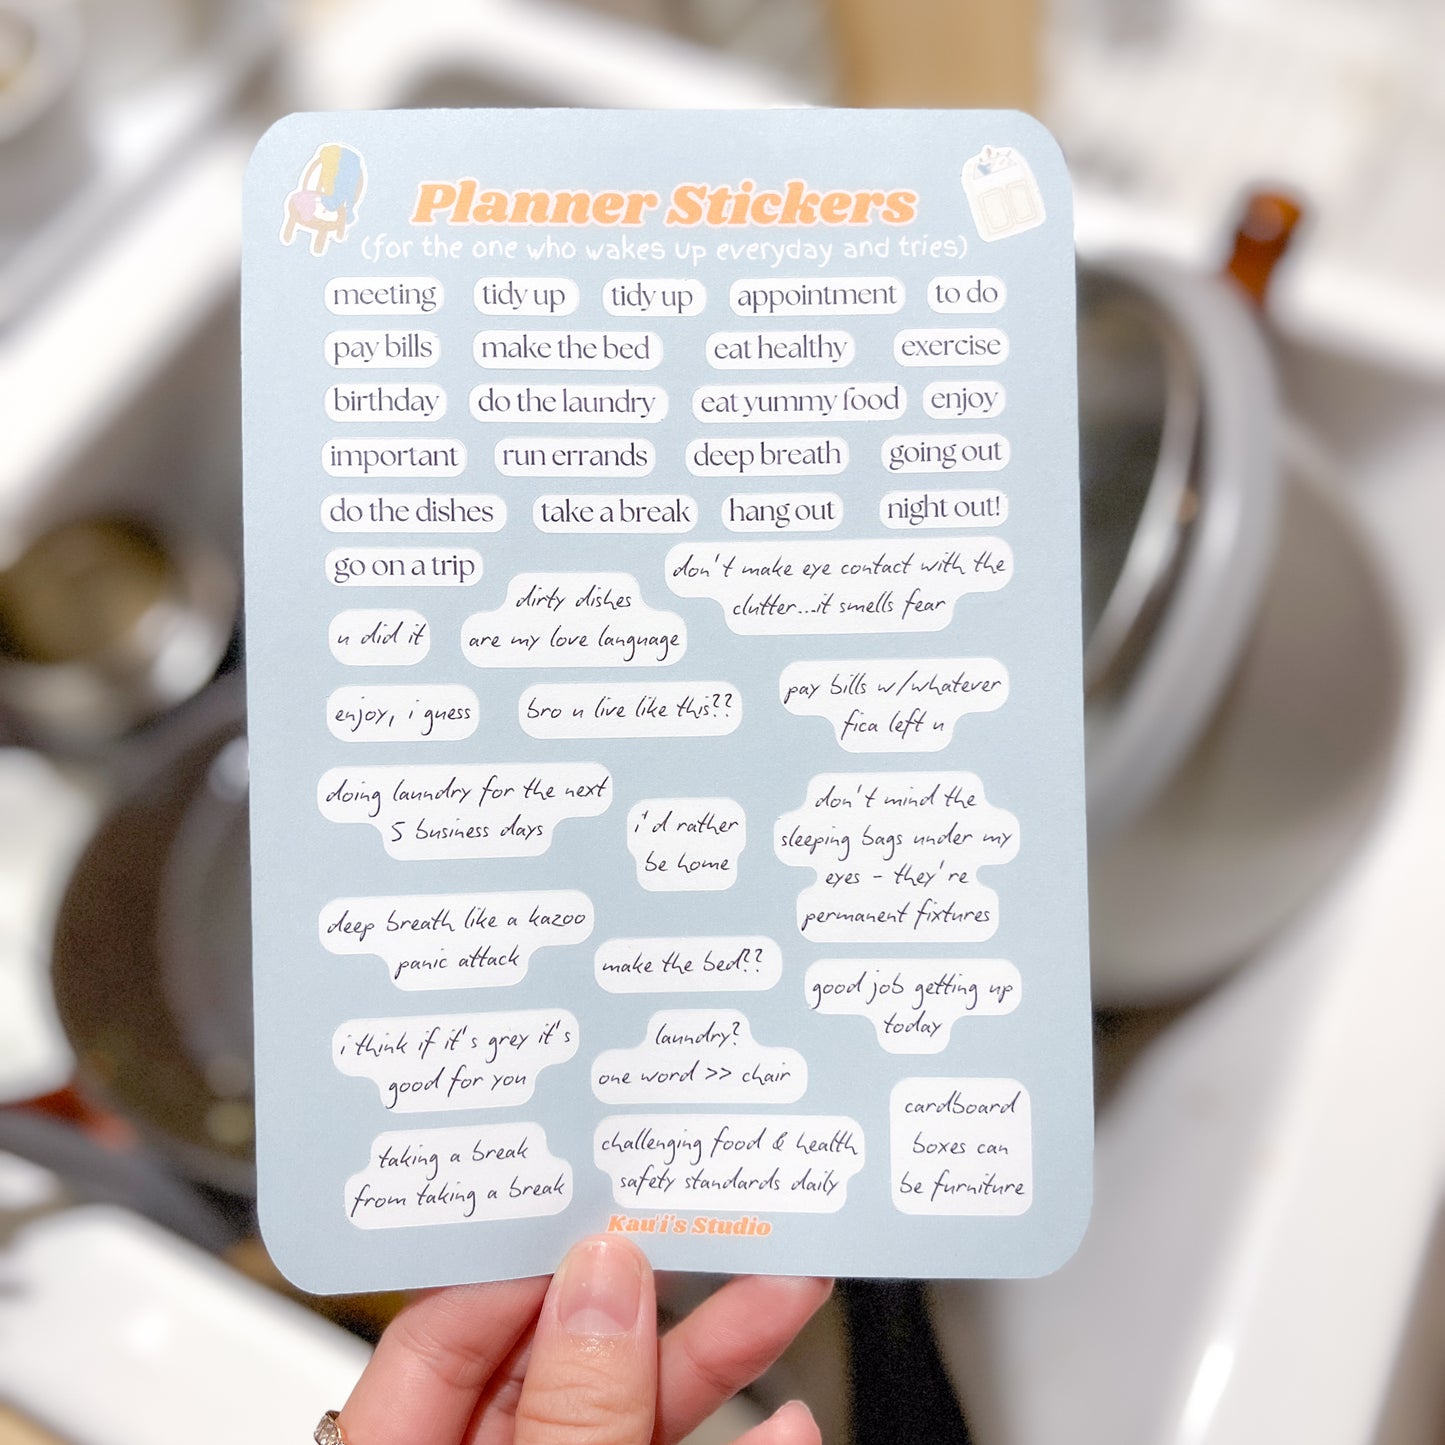 Planner Stickers
(for the one who wakes up everyday and tries)
meeting
tidy up
tidy up
appointment
to do
pay bills
make the bed
eat healthy
exercise
birthday
do the laundry
eat yummy food
enjoy
important
run errands
deep breath
going out
do the dishes
take a break
hang out
night out!
go on a trip
don't make eye contact with the
clutter...it smells fear
dirty dishes
are my love language
u did it
enjoy, i guess
bro u live like this??
pay bills w/whatever
fica left u
doing laundry for the next
5 business days
i'd rather
be home
don't mind the
sleeping bags under my
eyes - they're
permanent fixtures
deep breath like a kazoo
panic attack
make the bed??
good job getting up
today
i think if it's grey it's
good for you
laundry?
one word >> chair
cardboard
boxes can
be furniture
taking a break
from taking a break
challenging food & health
safety standards daily
Kau'i's Studio